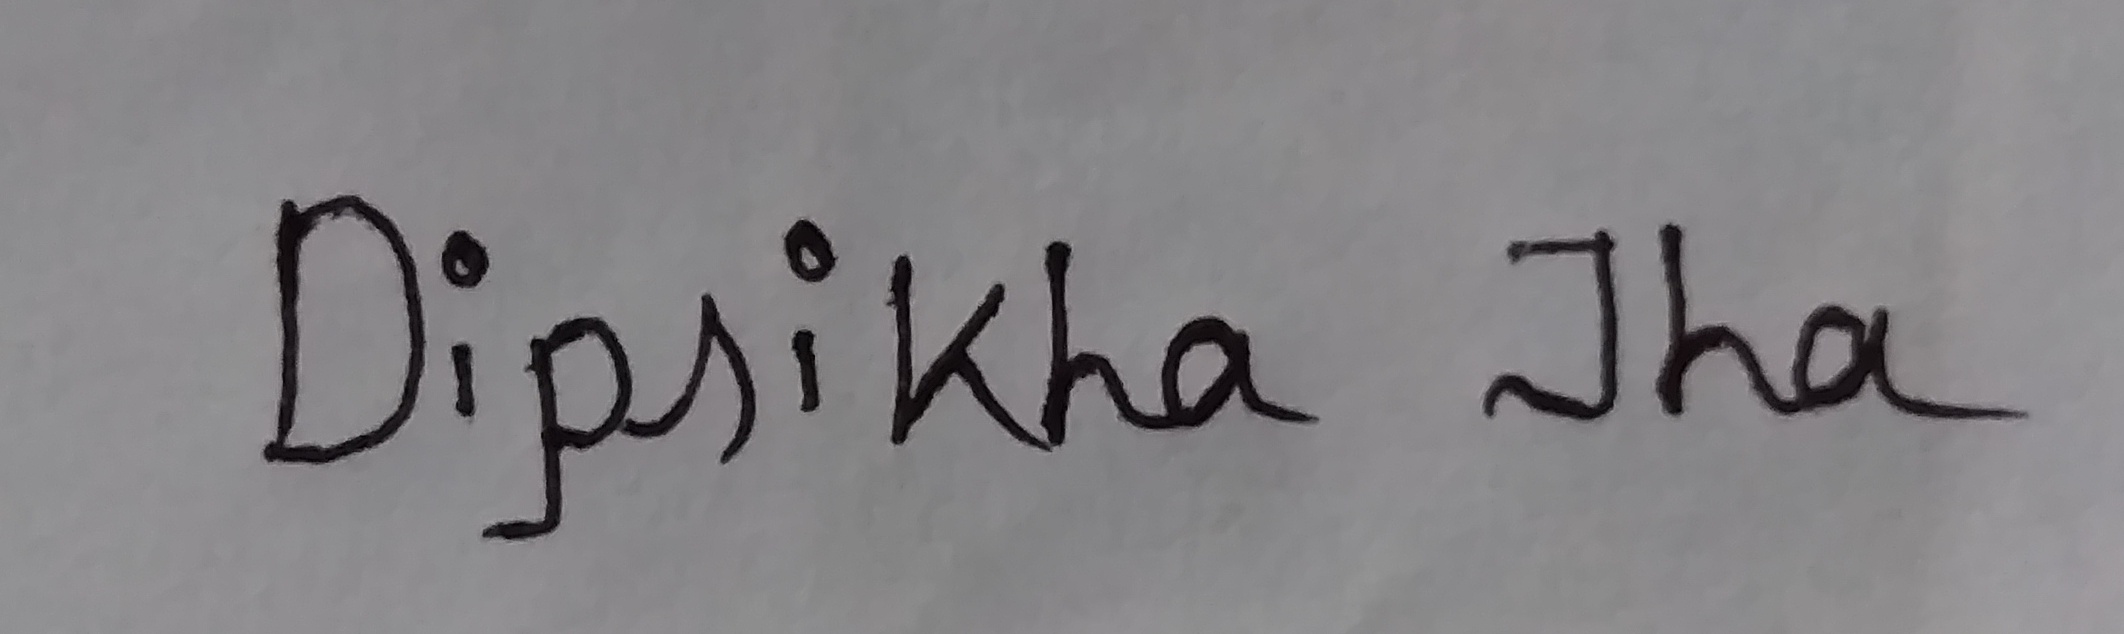 Dipsikha Jha